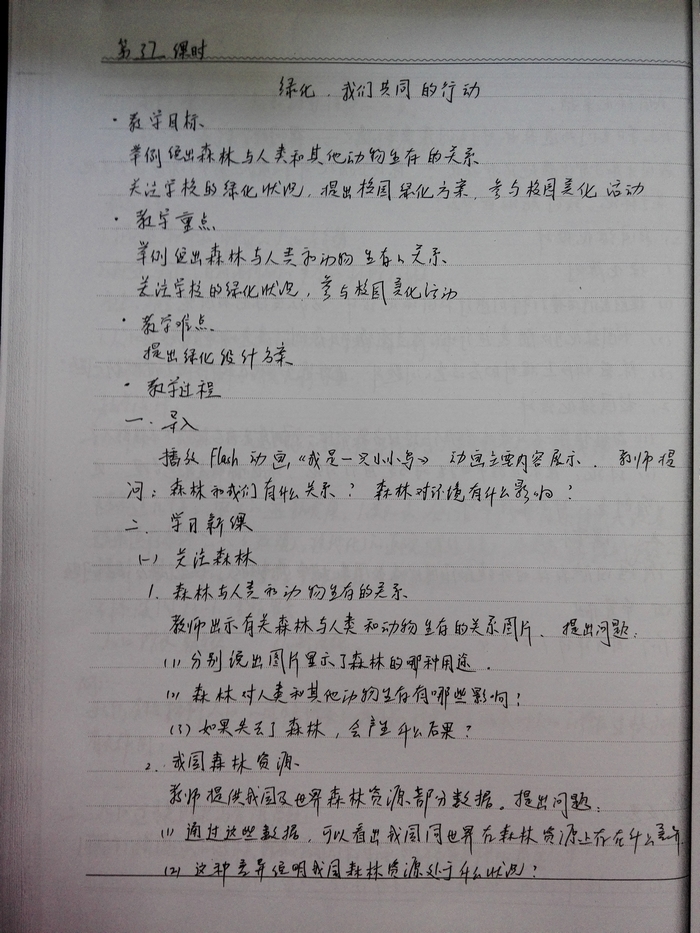 第37课时
绿化，我们共同的行动
·教学目标
举例说出森林与人类和其他动物生存的关系
关注学校的绿化状况，提出校园绿化方案，参与校园美化活动
·教学重点
举例说出森林与人类和动物生存的关系
关注学校的绿化状况，参与校园美化活动
·教学难点
提出绿化设计方案
·教学过程
一、导入
播放Flash动画，《我是一只小小鸟》动画主要内容展示．教师提
问：森林和我们有什么关系？森林对环境有什么影响？
二、学习新课
(一)关注森林
1. 森林与人类和动物生存的关系
教师出示有关森林与人类和动物生存的关系图片．提出问题：
(1)分别说出图片显示了森林的哪种用途．
(2)森林对人类和其他动物生存有哪些影响？
(3)如果失去了森林，会产生什么后果？
2. 我国森林资源
教师提供我国及世界森林资源部分数据．提出问题：
(1)通过这些数据，可以看出我国同世界在森林资源上存在什么差异
(2)这种差异说明我国森林资源处于什么状况？